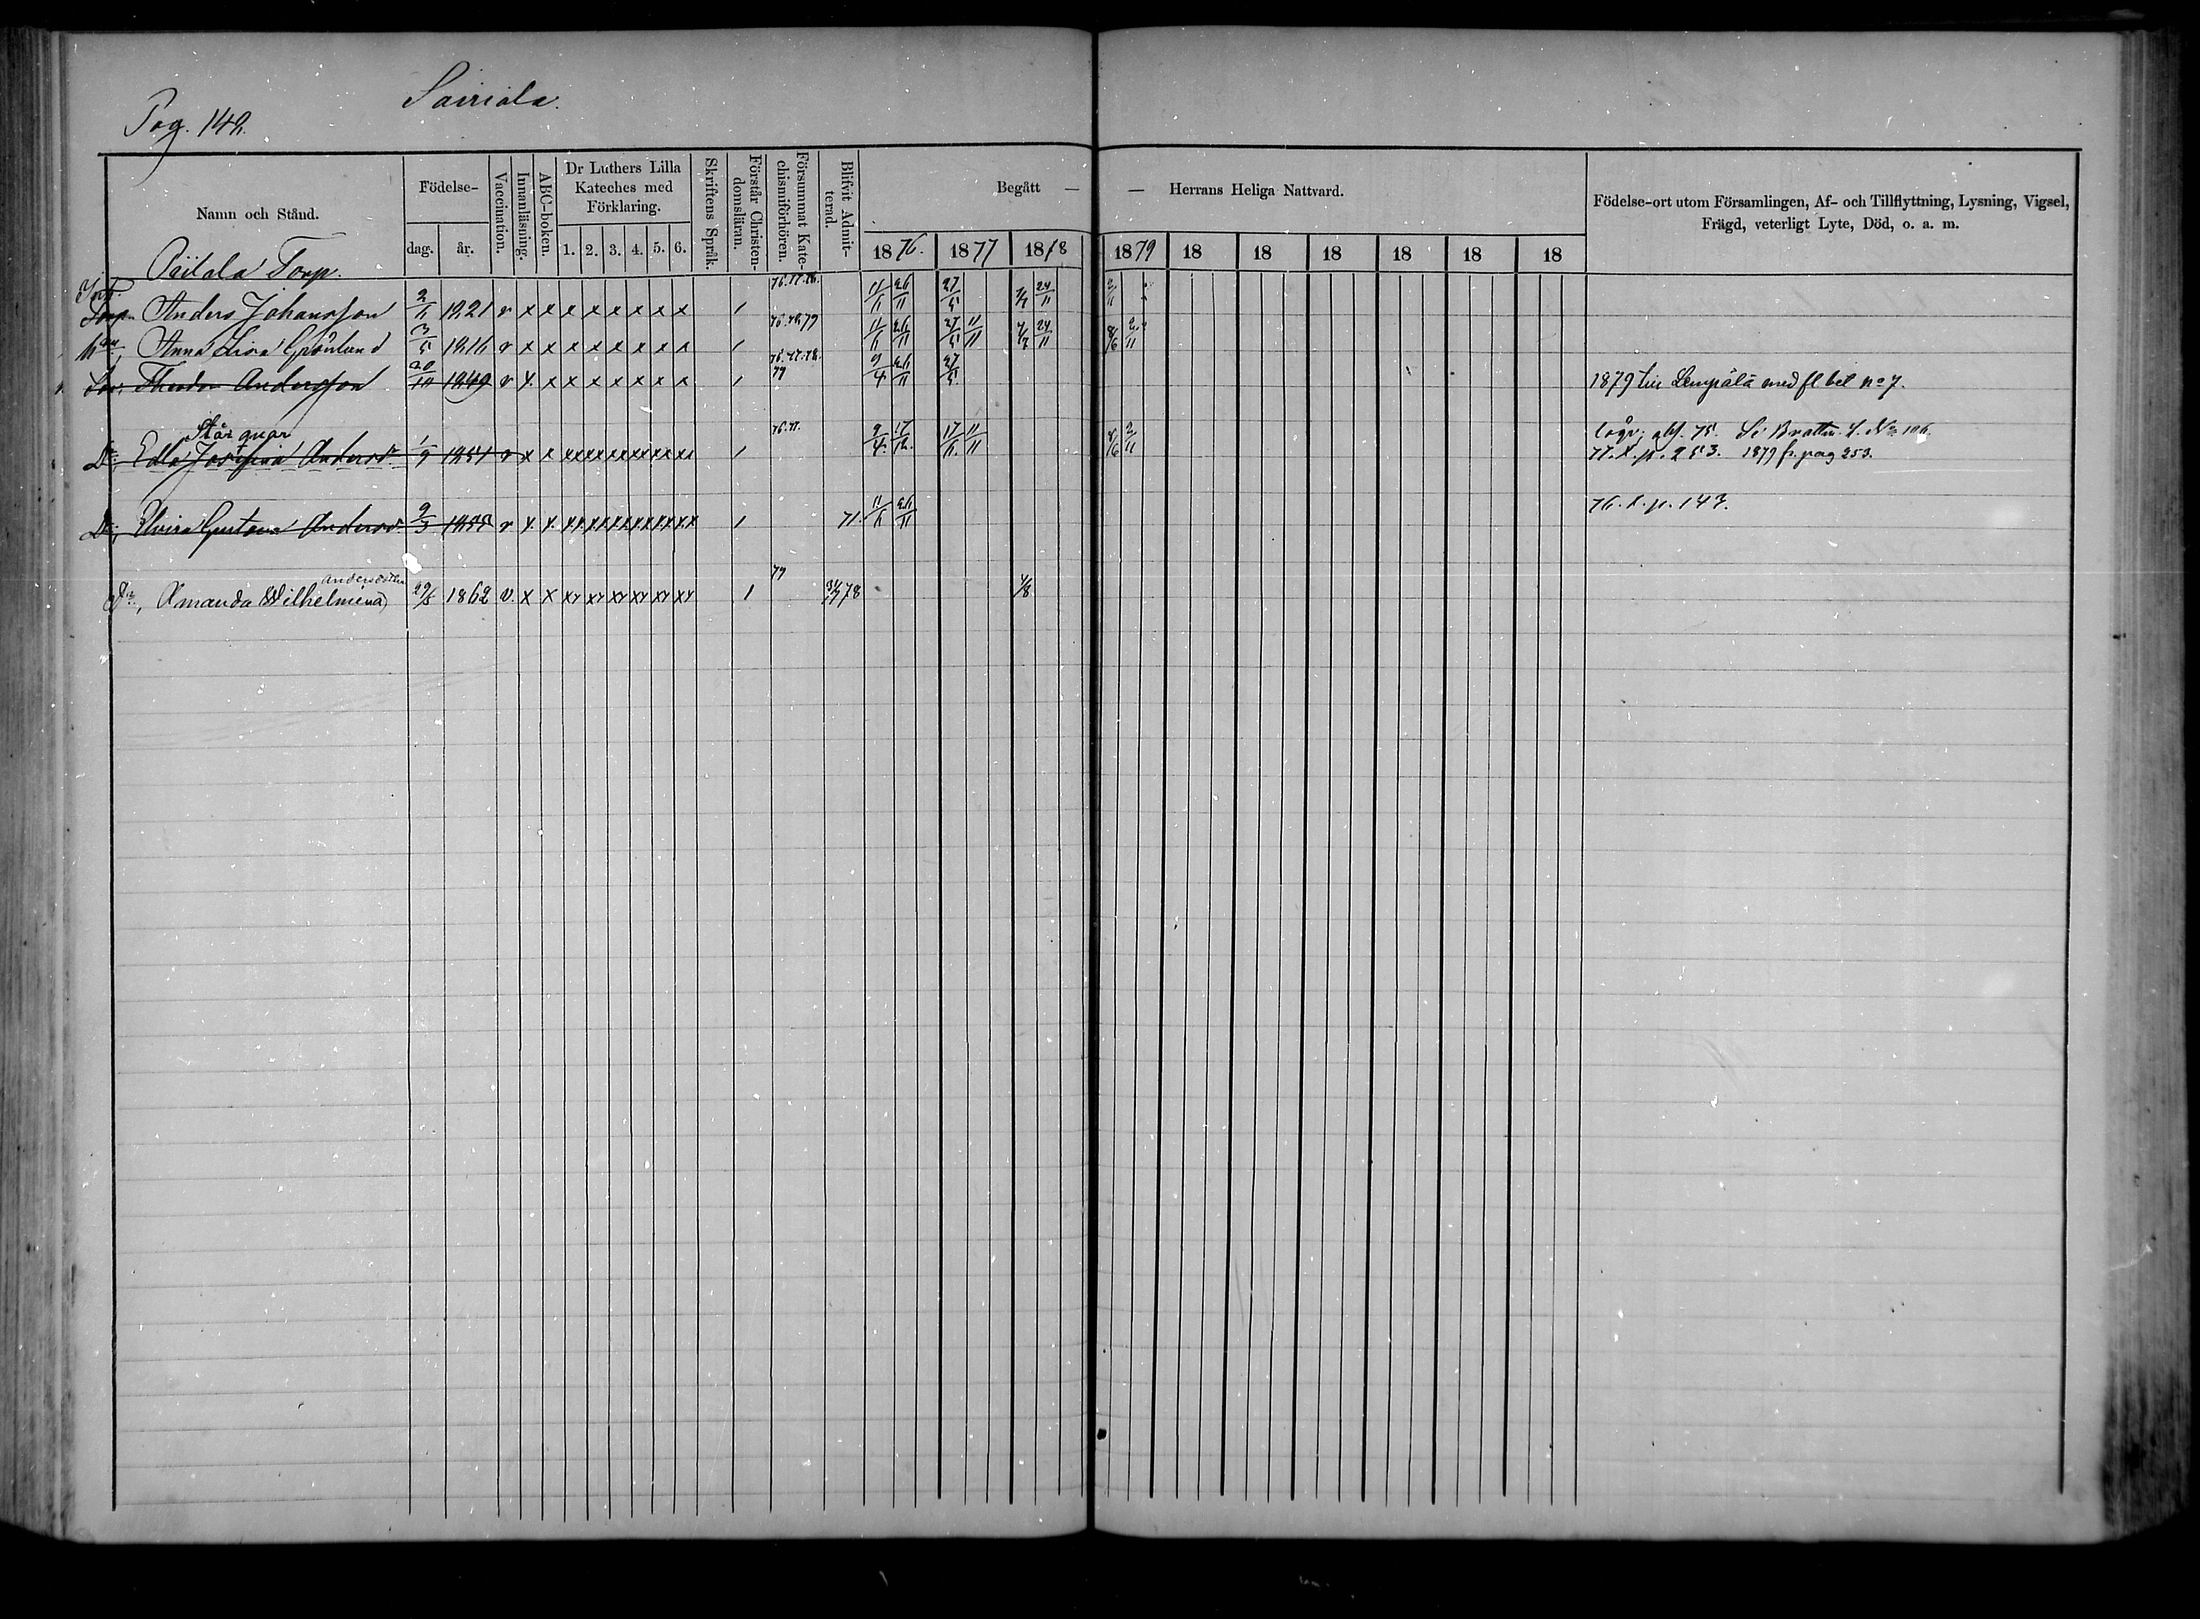 Sairiala.
Pag. 142.
Namn och Stånd.
Födelse-
dag.
år.
Vaccination.
Innanläsning.
ABC-boken.
Dr Luthers Lilla
Kateches med
Förklaring.
1. 2. 3. 4. 5. 6.
Skriftens Språk.
Förstår Christen-
domsläran.
Försummat Kate-
chismiförhören.
Blifvit Admit-
terad.
Begått — — Herrans Heliga Nattvard.
1876. 1877 1878 1879 18 18 18 18 18 18
Födelse-ort utom Församlingen, Af- och Tillflyttning, Lysning, Vigsel,
Frägd, veterligt Lyte, Död, o. a. m.
Päilälä Torp.
76.77.78.
Torp. Anders Johansson 2/11 1821 v x x x x x x x x / 11/6 26/11 27/5 7/7 24/11 2/11
76.78,79
hu, Anna Lisa Grönlund 3/5 1816 v x x x x x x x x / 11/6 26/11 27/5 11/11 7/7 24/11 8/6 2/11
76.77.78.
79
Son, Theodor Andersson 20/10 1849 v x x x x x x x x / 9/4 26/11 27/5 1879 till Lempälä med fl bet no 7.
Står qvar
76.77.
Dr, Edla Josefina Andersdr 1/9 1851 v x x xx xx xx xx xx xx / 9/4 17/12 17/6 11/11 8/6 2/11
lägr; abs. 75. Se Brottm. L. No 106.
77. t. p. 253. 1879 fr. pag 253.
Dr, Elvira Gustava Andersdr 9/3 1855 v x x xx xx xx xx xx xx / 71. 11/6 26/11 76. t. p. 147.
79
Dr, Amanda Wilhelmina Andersdotter 29/5 1862 v. x x xx xx xx xx xx xx / 31/7 78 4/8